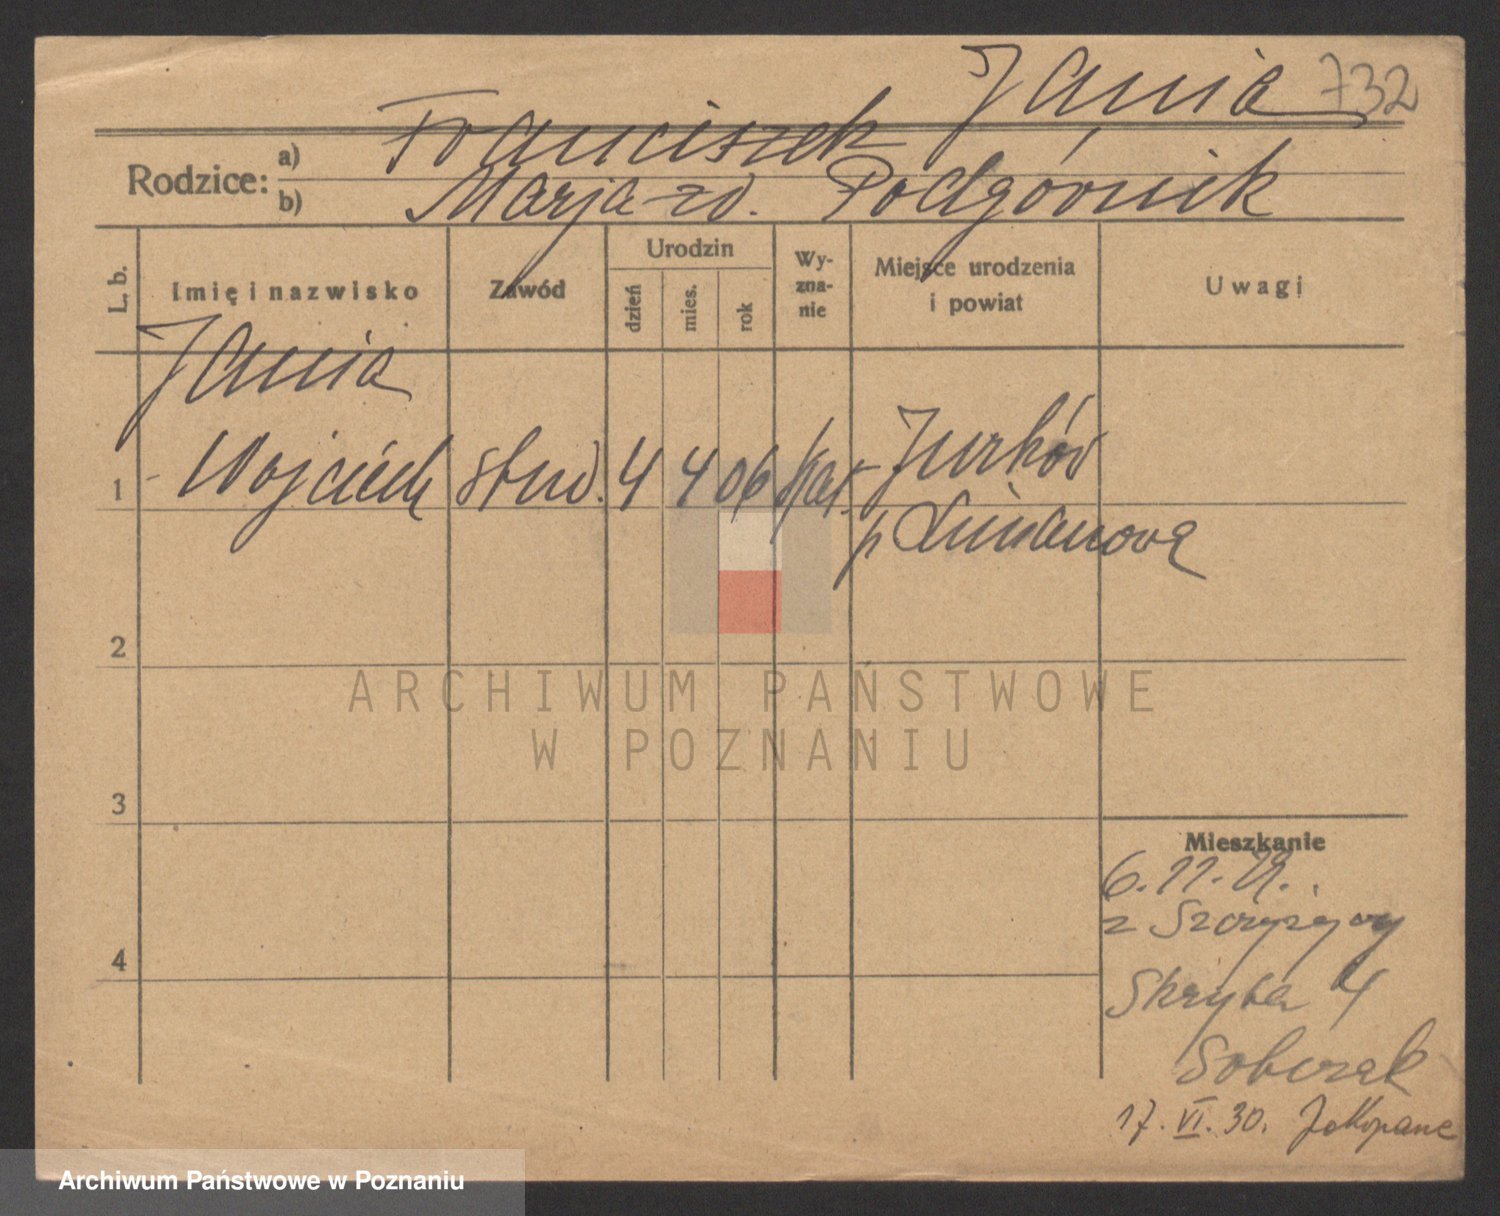 Jania 732
Rodzice: a) Franciszek
b) Marja zd. Podgórnik
L. b.
Imię i nazwisko
Zawód
Urodzin
dzień
mies.
rok
Wy-
zna-
nie
Miejsce urodzenia
i powiat
Uwagi
Jania
1 - Wojciech stud. 4 4 06 kat. Jurków
p Limanowa
2
3
4
Mieszkanie
6.11.29.
z Szczyrzyc
Skryta 4
Sobczak
17. VI. 30. Zakopane
ARCHIWUM PAŃSTWOWE
W POZNANIU
Archiwum Państwowe w Poznaniu